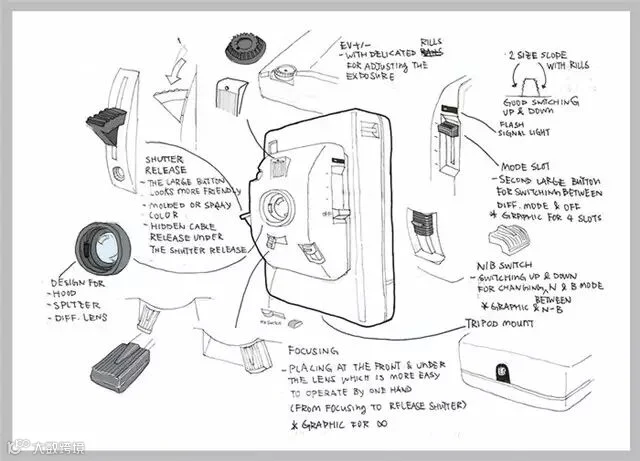 EV+/-
- WITH DELICATED RILLS
FOR ADJUSTING THE
EXPOSURE
2 SIZE SLOPE
WITH RILLS
GOOD SWITCHING
UP & DOWN
FLASH
SIGNAL LIGHT
MODE SLOT
- SECOND LARGE BUTTON
FOR SWITCHING BETWEEN
DIFF. MODE & OFF
* GRAPHIC FOR 4 SLOTS
SHUTTER
RELEASE
- THE LARGE BUTTON
LOOKS MORE FRIENDLY
- MOLDED OR SPRAY
COLOR
- HIDDEN CABLE
RELEASE UNDER
THE SHUTTER RELEASE
N/B SWITCH
- SWITCHING UP & DOWN
FOR CHANGING N & B MODE
BETWEEN
* GRAPHIC & N-B
DESIGN FOR
- HOOD
- SPLITZER
- DIFF. LENS
TRIPOD MOUNT
FOCUSING
- PLACING AT THE FRONT & UNDER
THE LENS WHICH IS MORE EASY
TO OPERATE BY ONE HAND
(FROM FOCUSING TO RELEASE SHUTTER)
* GRAPHIC FOR ∞
大数跨境